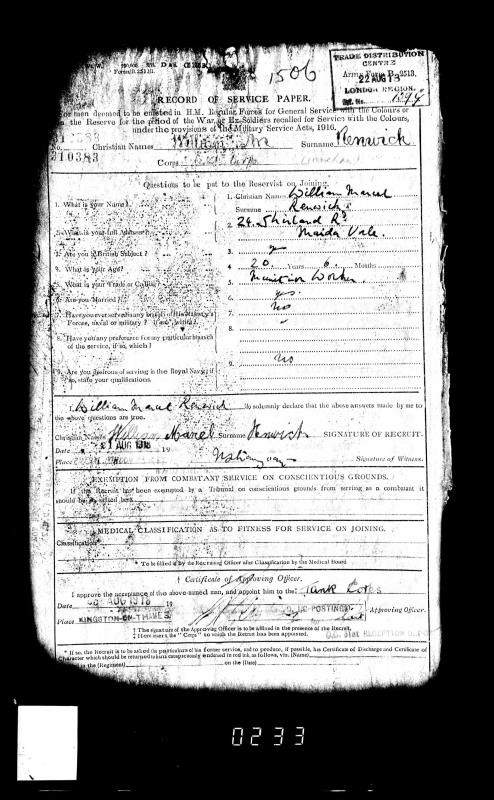 1506
TRADE DISTRIBUTION
CENTRE
Army Form B. 2513.
22 AUG 18
LONDON REGION.
RECORD OF SERVICE PAPER.
For men deemed to be enlisted in H.M. Regular Forces for General Service with the Colours or
in the Reserve for the period of the War, or Ex-Soldiers recalled for Service with the Colours,
under the provisions of the Military Service Acts, 1916.
No. 310383 Christian Names William M Surname Renwick
Corps
Questions to be put to the Reservist on Joining.
1. What is your Name? 1. Christian Name William Marcel
Surname Renwick
2. What is your full Address? 2. 24 Shirland Rd
Maida Vale.
3. Are you a British Subject? 3. y
4. What is your Age? 4. 20 Years 6 Months
5. What is your Trade or Calling? 5. Munition Worker.
6. Are you Married? 6. yes.
7. Have you ever served in any branch of His Majesty's 7. No
Forces, naval or military? If so, which?
8. Have you any preference for any particular branch 8. -
of the service, if so, which?
9. Are you desirous of serving in the Royal Navy; if 9. No
so, state your qualifications.
I, William Marcel Renwick do solemnly declare that the above answers made by me to
the above questions are true.
Christian Names William Marcel Surname Renwick SIGNATURE OF RECRUIT
Date 21 AUG 1918 19
Place Signature of Witness.
EXEMPTION FROM COMBATANT SERVICE ON CONSCIENTIOUS GROUNDS.
If the Recruit has been exempted by a Tribunal on conscientious grounds from serving as a combatant it
should be stated here
MEDICAL CLASSIFICATION AS TO FITNESS FOR SERVICE ON JOINING.
Classification*
* To be filled in by the Recruiting Officer after Classification by the Medical Board
† Certificate of Approving Officer.
I approve the acceptance of the above-named man, and appoint him to the‡ Tank Corps
Date AUG 1918 19
POSTING Approving Officer.
Place KINGSTON-ON-THAMES
† The signature of the Approving Officer is to be affixed in the presence of the Recruit.
‡ Here insert the "Corps" to which the Recruit has been appointed.
* If so, the Recruit is to be asked the particulars of his former service, and to produce, if possible, his Certificate of Discharge and Certificate of
Character which should be returned to him conspicuously endorsed in red ink as follows, viz. (Name)
in the (Regiment) on the (Date)
0233